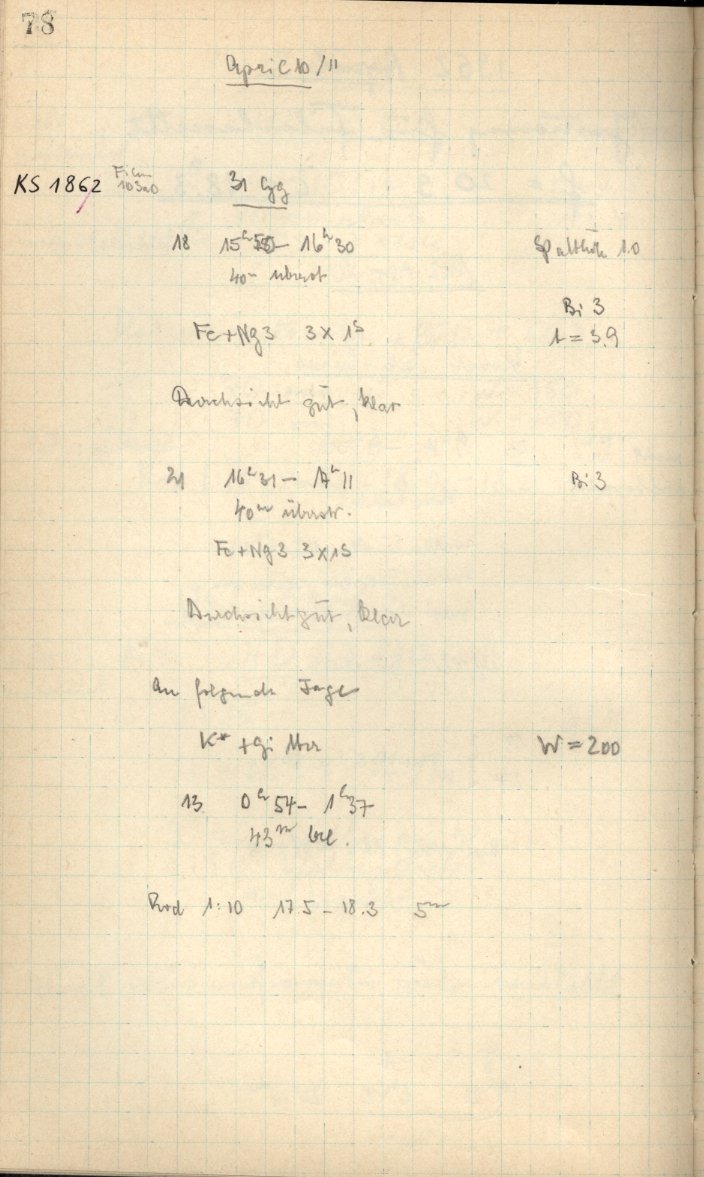 78
April 10/11
KS 1862 Film 103aO 31 Cyg
18 15h 50 – 16h 30 Spalthöhe 1.0
40m überstr
Bi 3
Fe+Ng3 3x1s t=3.9
Durchsicht gut, klar
21 16h31 – 17h11 Bi 3
40m überstr.
Fe+Ng3 3x1s
Durchsicht gut, klar
An folgende Tage
K* + Gi W=200
13 0h54 – 1h37
43m bel.
Rod 1:10 17.5 – 18.3 5m